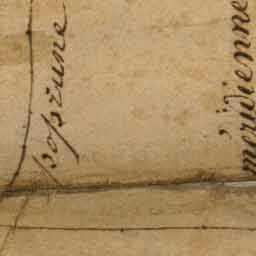 popžune
méridienne